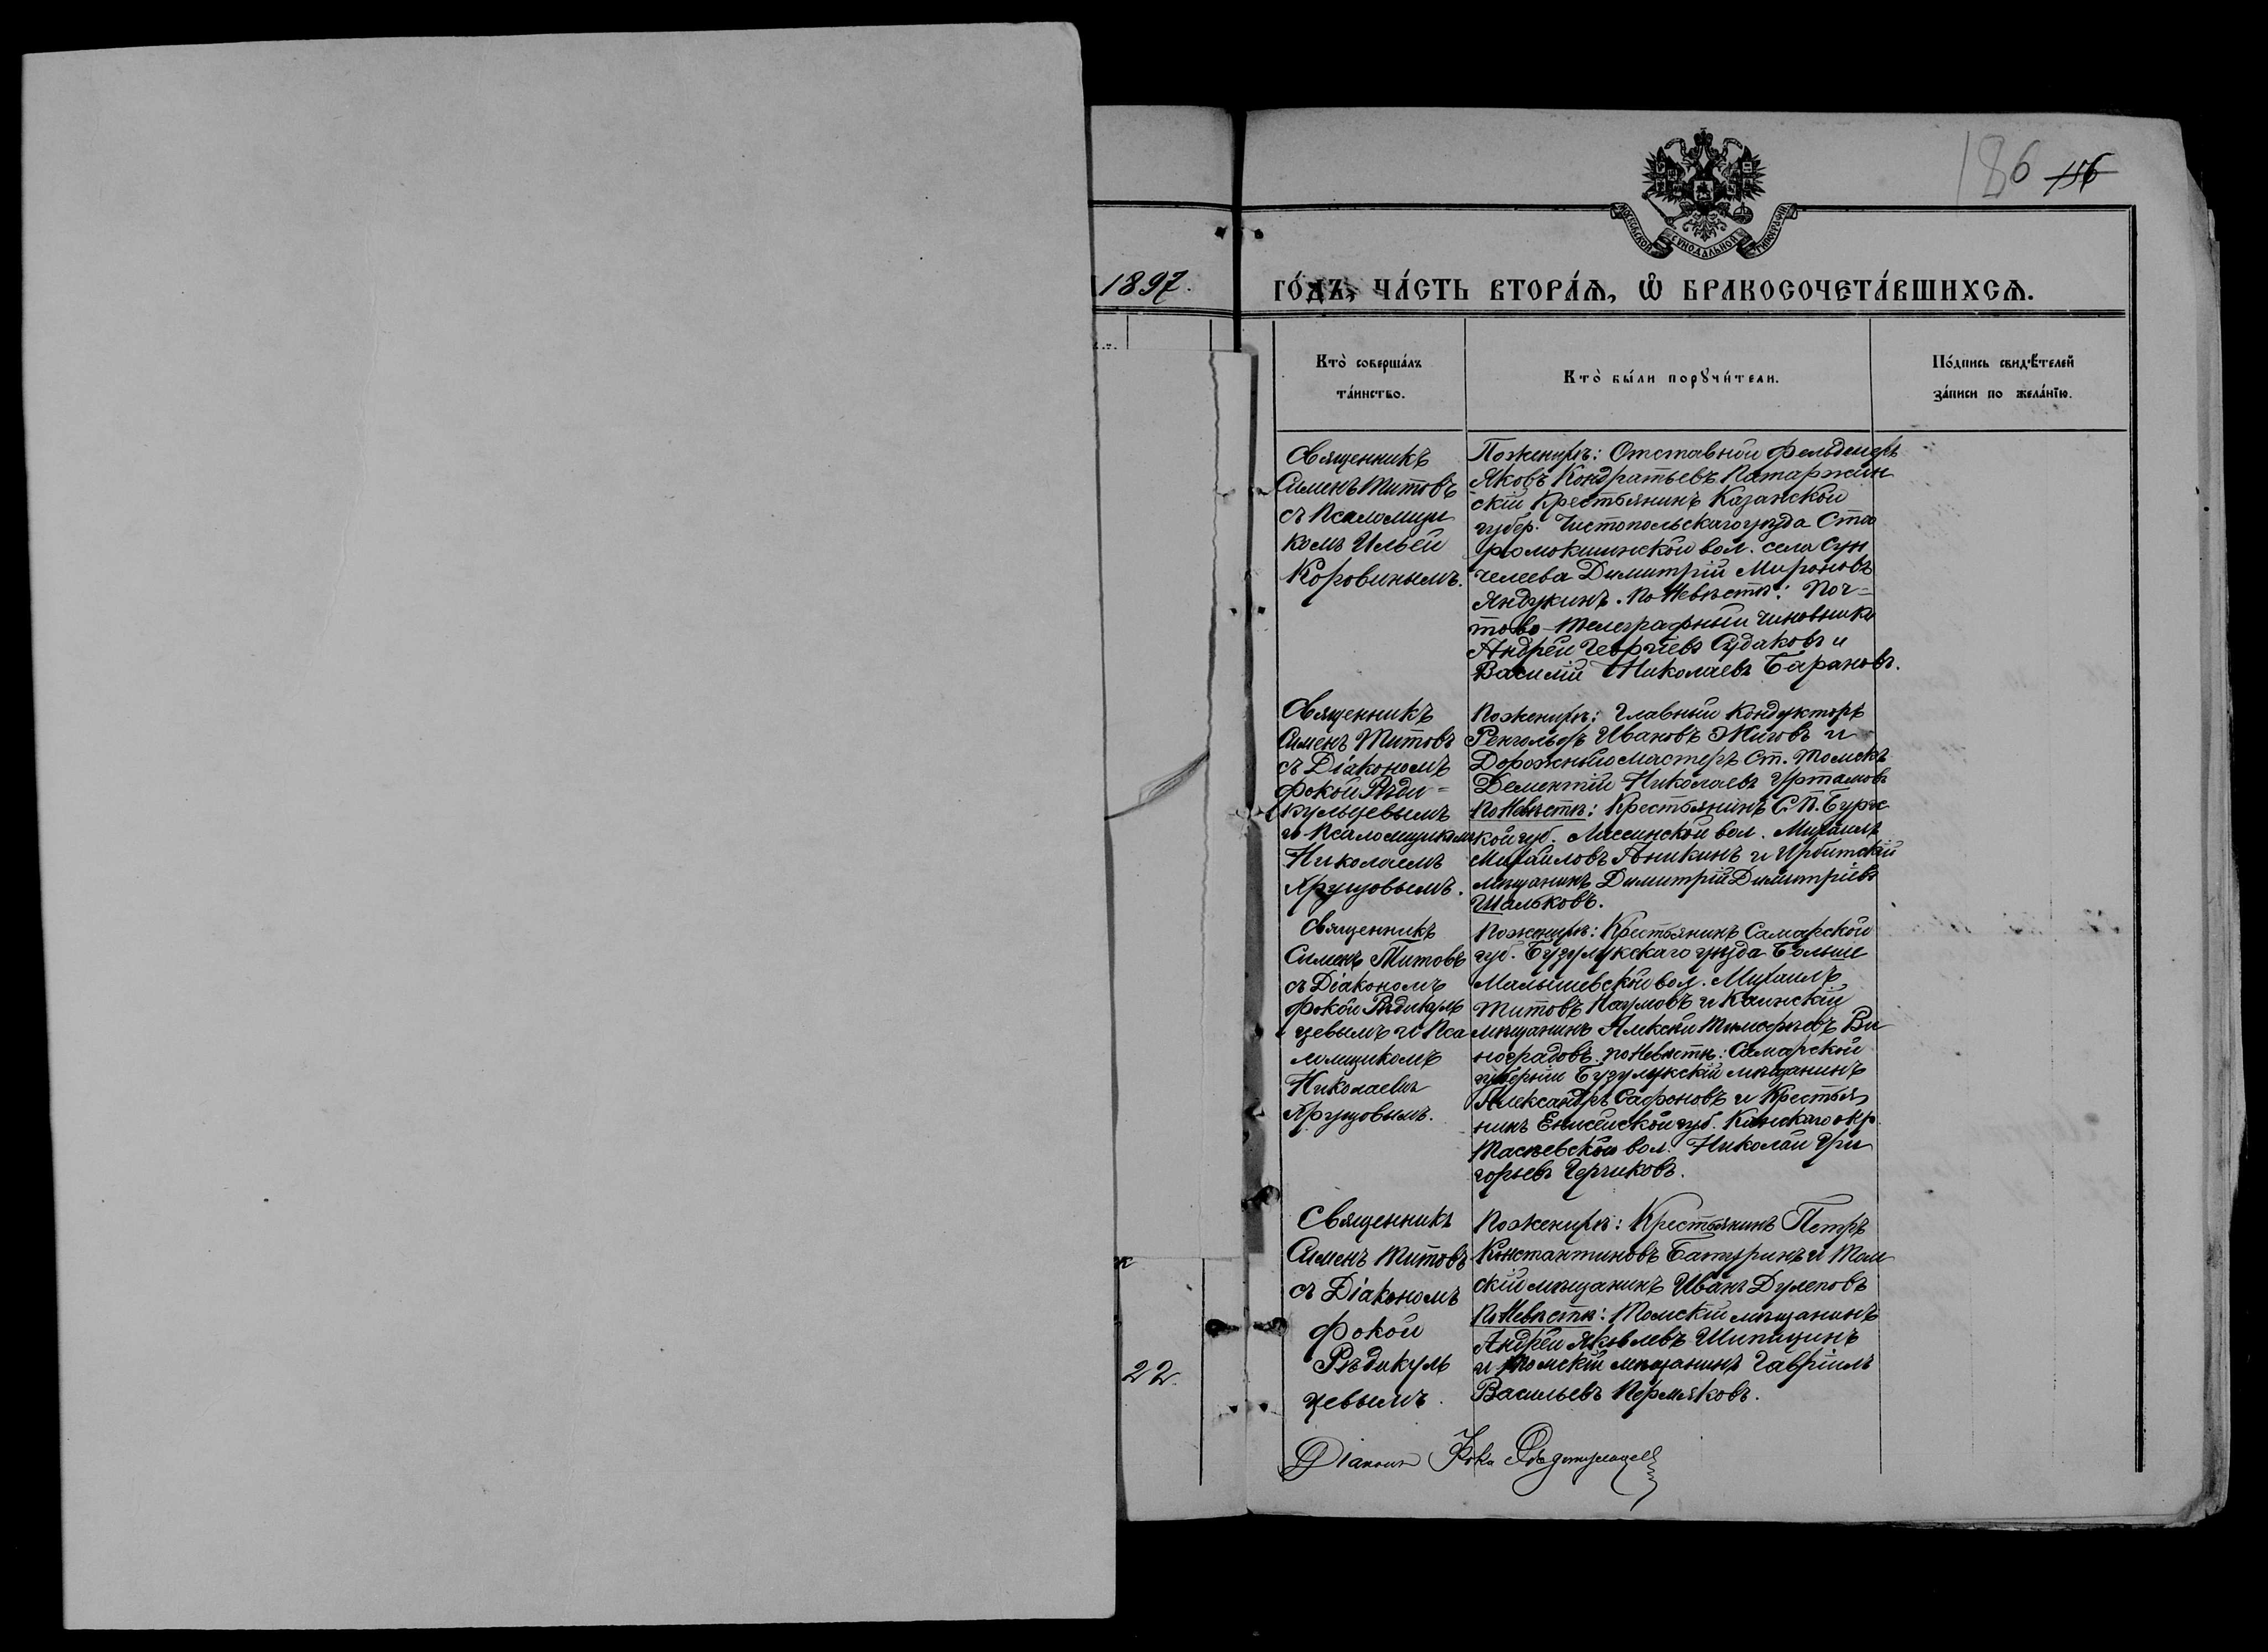 186 156
МОСКОВСКОЙ СѴНОДАЛЬНОЙ ТИПОГРАФІИ
1897.
ГО́ДЪ, ЧА́СТЬ ВТОРА́Ѧ, Ѽ БРАКОСОЧЕТА́ВШИХСѦ.
Кто̀ соверша́лъ
та́инство.
Кто̀ бы́ли порꙋчи́тели.
По́дпись свидѣ́телей
за́писи по жела́нїю.
Священникъ
Симеонъ Титовъ
съ Псаломщи
комъ Ильей
Коровинымъ.
По женихѣ: Отставной фельдшеръ
Яковъ Кондратьевъ Патаржин
скій Крестьянинъ Казанской
губер. Чистопольскаго уѣзда Ста
ромокшинской вол. села Сун
челеева Димитрій Мироновъ
Яндукинъ. По Невѣстѣ: Поч=
тово-Телеграфный чиновникъ
Андрей Георгіевъ Судаковъ и
Василій Николаевъ Барановъ.
Священникъ
Симеонъ Титовъ
съ Діакономъ
Фокой Рѣди=
кульцевымъ
и Псаломщикомъ
Николаемъ
Хрущовымъ.
По женихѣ: Главный Кондукторъ
Ренгольдъ Ивановъ Жиговъ и
Дорожный мастеръ Ст. Томскъ
Дементій Николаевъ Уртамовъ
По Невѣстѣ: Крестьянинъ С.П.Бургс
кой губ. Лиссинской вол. Михаилъ
Михаиловъ Аникинъ и Ирбитскій
мѣщанинъ Димитрій Димитріевъ
Шальковъ.
Священникъ
Симеонъ Титовъ
съ Діакономъ
Фокой Рѣдикуль
цевымъ и Пса
ломщикомъ
Николаемъ
Хрущовымъ.
По женихѣ: Крестьянинъ Самарской
губ. Бузулукскаго уѣзда Больше
Малышевской вол. Михаилъ
Титовъ Наумовъ и Каинскій
мѣщанинъ Алексѣй Тимофѣевъ Ви
ноградовъ. по Невѣстѣ: Самарской
губерніи Бузулукскій мѣщанинъ
Александръ Сафоновъ и Крестья
нинъ Енисейской губ. Канскаго окр.
Тасѣевской вол. Николай Гри
горьевъ Черчиковъ.
22.
Священникъ
Симеонъ Титовъ
съ Діакономъ
Фокой
Рѣдикуль
цевымъ.
По женихѣ: Крестьянинъ Петръ
Константиновъ Батуринъ и Том
скій мѣщанинъ Иванъ Дулеповъ
По Невѣстѣ: Томскій мѣщанинъ
Андрей Яковлевъ Шипицинъ
и Томскій мѣщанинъ Гавріилъ
Васильевъ Пермяковъ.
Діаконъ Фока Рѣдикульцев